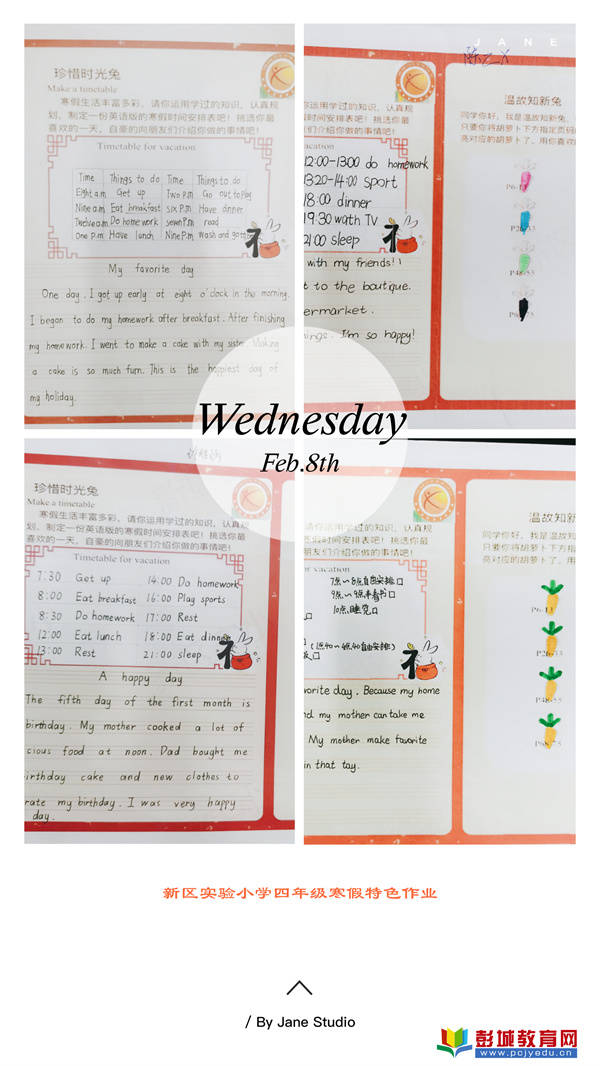 JANE
珍惜时光兔
Make a timetable
寒假生活丰富多彩，请你运用学过的知识，认真规
划，制定一份英语版的寒假时间安排表吧！挑选你最
喜欢的一天，自豪的向朋友们介绍你做的事情吧！
Timetable for vacation
Time Things to do Time Things to do
Eight a.m Get up Two p.m Go out to play
Nine a.m Eat breakfast six p.m Have dinner
Twelve a.m Do homework seven p.m read
One p.m Have lunch Nine p.m wash and go to
My favorite day
One day, I got up early at eight o'clock in the morning.
I began to do my homework after breakfast. After finishing
my homework. I went to make a cake with my sister. Making
a cake is so much fum. This is the happiest day of
my holiday.
你运用学过的知识，认真规
假时间安排表吧！挑选你最
们介绍你做的事情吧！
vacation
12:00-13:00 do homework
13:20-14:00 sport
18:00 dinner
19:30 wath TV
21:00 sleep
with my friends!
t to the boutique.
ermarket.
ings. I'm so happy!
温故知新兔
同学你好，我是温故知新兔，
只要你将胡萝卜下方指定页码
亮对应的胡萝卜了。用你喜欢
Wednesday
Feb.8th
珍惜时光兔
Make a timetable
寒假生活丰富多彩，请你运用学过的知识，认真规
划，制定一份英语版的寒假时间安排表吧！挑选你最
喜欢的一天，自豪的向朋友们介绍你做的事情吧！
Timetable for vacation
7:30 Get up 14:00 Do homework
8:00 Eat breakfast 16:00 Play sports
8:30 Do homework 17:00 Rest
12:00 Eat lunch 18:00 Eat dinner
13:00 Rest 21:00 sleep
A happy day
The fifth day of the first month is
birthday. My mother cooked a lot of
cious food at noon. Dad bought me
irthday cake and new clothes to
rate my birthday. I was very happy
day.
请你运用学过的知识，认真规
寒假时间安排表吧！挑选你最
朋友们介绍你做的事情吧！
for vacation
7点~8点自由安排
10点睡觉
vorite day. Because my home
nd my mother can take me
My mother make favorite
in that tay.
温故知新
同学你好，我是温故知新
只要你将胡萝卜下方指
亮对应的胡萝卜了。用
P6-13
P26-33
P48-55
P68-75
新区实验小学四年级寒假特色作业
/ By Jane Studio
彭城教育网
www.pcjyedu.cn